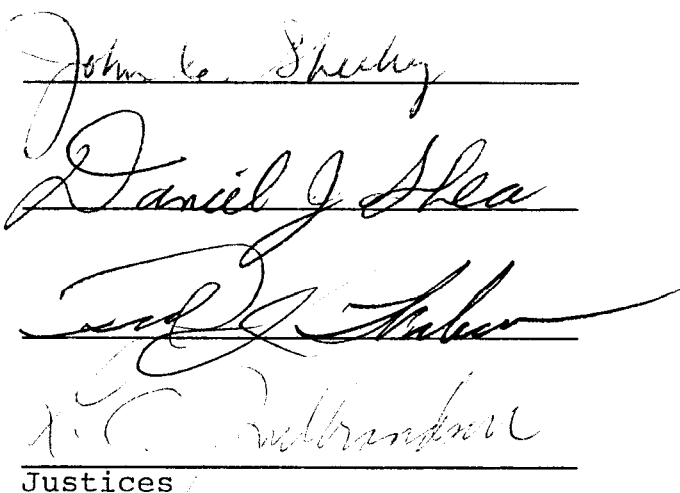 John C. Sheehy
Daniel J Shea
J.
L. C. Gulbrandson
Justices